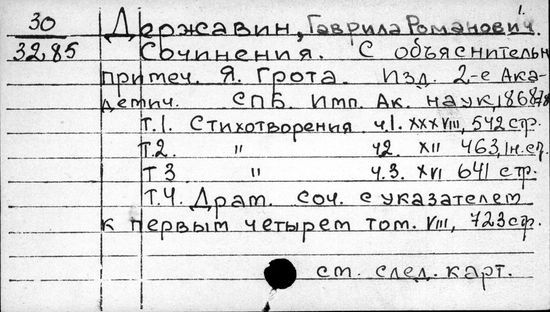 30 Державин, Гаврила Романович.
32,85 Сочинения. С объяснительн
примеч. Я. Грота. Изд. 2-е Ака-
демич. СПБ. Имп. Ак. наук, 1868-78
Т.1. Стихотворения ч.1. XXXVIII, 542 стр.
Т.2. " ч2. XII 463, 1н.ст.
Т3 " ч.3. XVI 641 стр.
Т.4. Драт. соч. с указателем
к первым четырем том. VIII, 723 стр.
см. след. карт.